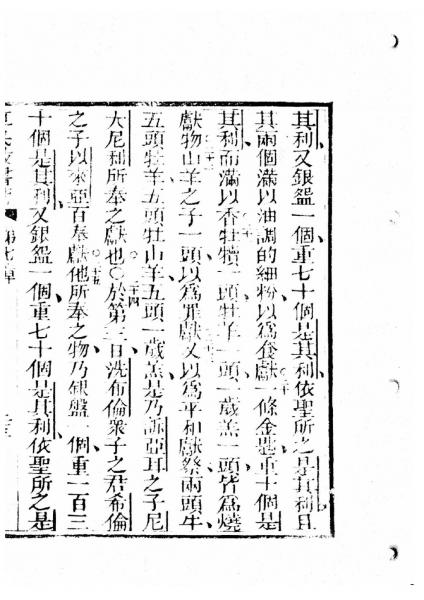 其利又銀盌一個重七十個是其利依聖所之是其利且
其兩個滿以油調的細粉以爲食獻一條金匙重十個是
其利而滿以香牡犢一頭牡羊一頭一歲羔一頭皆爲燒
獻物山羊之子一頭以爲罪獻又以爲平和獻祭兩頭牛
五頭牡羊五頭牡山羊五頭一歲羔是乃訴亞耳之子尼
大尼利所奉之獻也○於第三日洗布倫衆子之君希倫
之子以來亞百奉獻他所奉之物乃銀盤一個重一百三
十個是其利又銀盌一個重七十個是其利依聖所之是